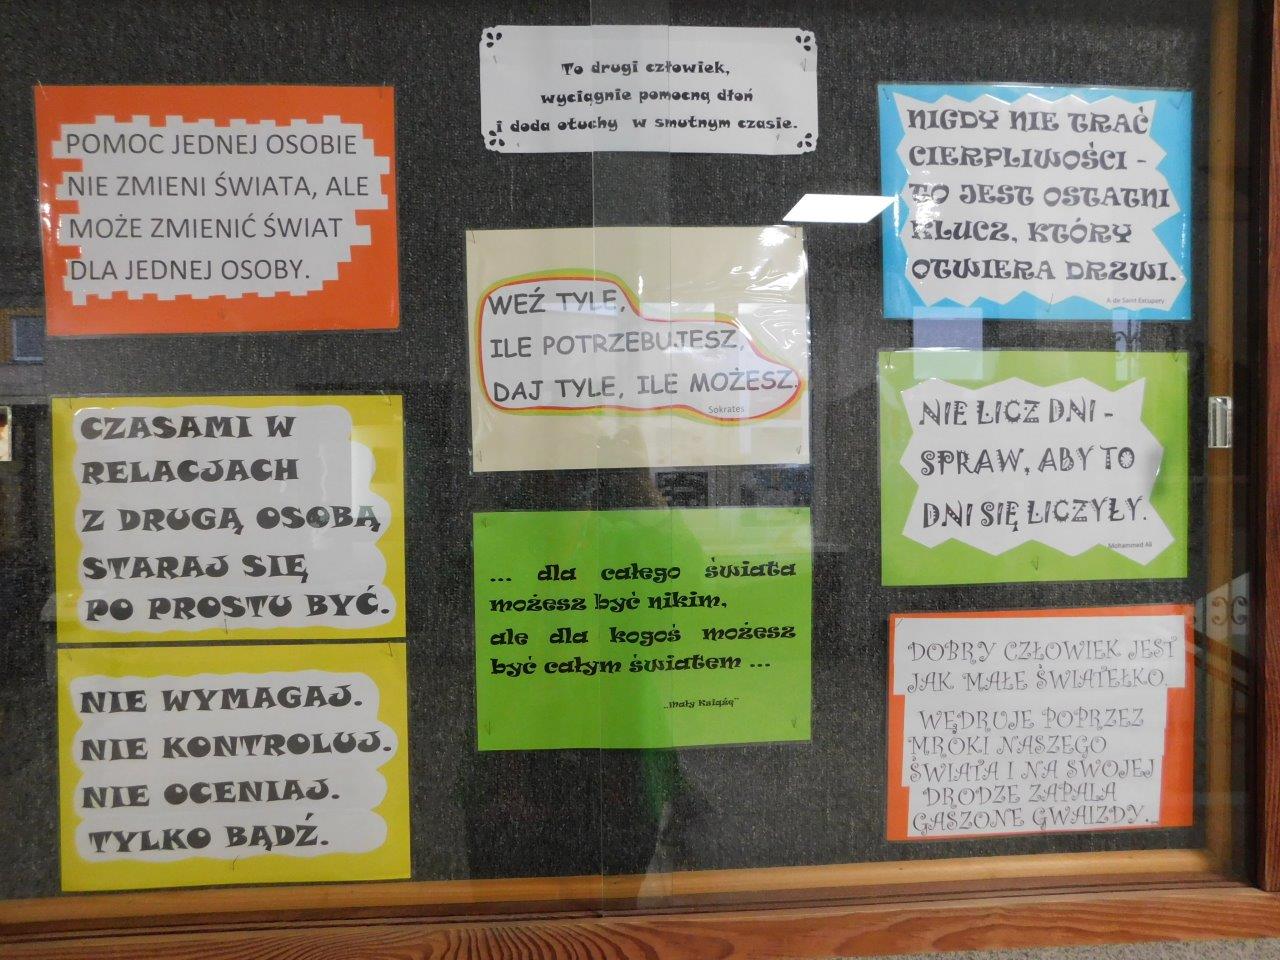 POMOC JEDNEJ OSOBIE
NIE ZMIENI ŚWIATA, ALE
MOŻE ZMIENIĆ ŚWIAT
DLA JEDNEJ OSOBY.
CZASAMI W
RELACJACH
Z DRUGĄ OSOBĄ
STARAJ SIĘ
PO PROSTU BYĆ.
NIE WYMAGAJ.
NIE KONTROLUJ.
NIE OCENIAJ.
TYLKO BĄDŹ.
To drugi człowiek,
wyciągnie pomocną dłoń
i doda otuchy w smutnym czasie.
WEŹ TYLE,
ILE POTRZEBUJESZ,
DAJ TYLE, ILE MOŻESZ.
Sokrates
... dla całego świata
możesz być nikim,
ale dla kogoś możesz
być całym światem ...
„Mały Książę"
NIGDY NIE TRAĆ
CIERPLIWOŚCI -
TO JEST OSTATNI
KLUCZ, KTÓRY
OTWIERA DRZWI.
A. de Saint Exupery
NIE LICZ DNI -
SPRAW, ABY TO
DNI SIĘ LICZYŁY.
Mohammed Ali
DOBRY CZŁOWIEK JEST
JAK MAŁE ŚWIATEŁKO.
WĘDRUJE POPRZEZ
MROKI NASZEGO
ŚWIATA I NA SWOJEJ
DRODZE ZAPALA
GASZONE GWAIZDY.